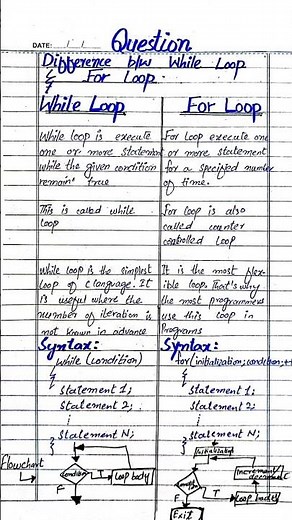 Question
DATE:
Difference b/w While Loop
& For Loop.
While Loop
While loop is execute
one or more statement
while the given condition
remain' true
This is called while
loop
While loop is the simplest
loop of c language. It
is useful where the
number of iteration is
not known in advance
Syntax:
while (condition)
{
Statement 1;
Statement 2;
⋮
Statement N;
}
Flowchart
condition
T
Loop body
F
For Loop
For Loop execute one
or more statement
for a specified number
of time.
For loop is also
called counter
controlled loop
It is the most flex-
ible loop. That's why
the most programmers
use this loop in
Programs
Syntax:
for(initialization;condition;+
{
Statement 1;
Statement 2;
⋮
Statement N;
}
Initialization
Increment/
decrement
T
Loop body
F
Exit